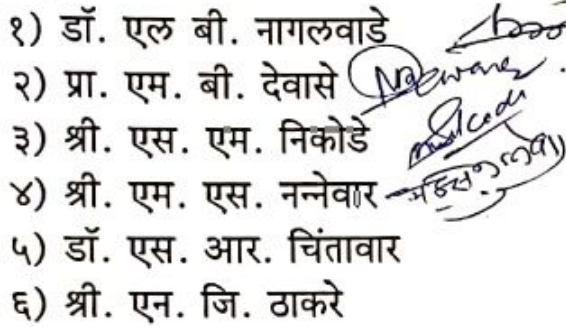 १) डॉ. एल बी. नागलवाडे
२) प्रा. एम. बी. देवासे
३) श्री. एस. एम. निकोडे
४) श्री. एम. एस. नन्नेवार
५) डॉ. एस. आर. चिंतावार
६) श्री. एन. जि. ठाकरे